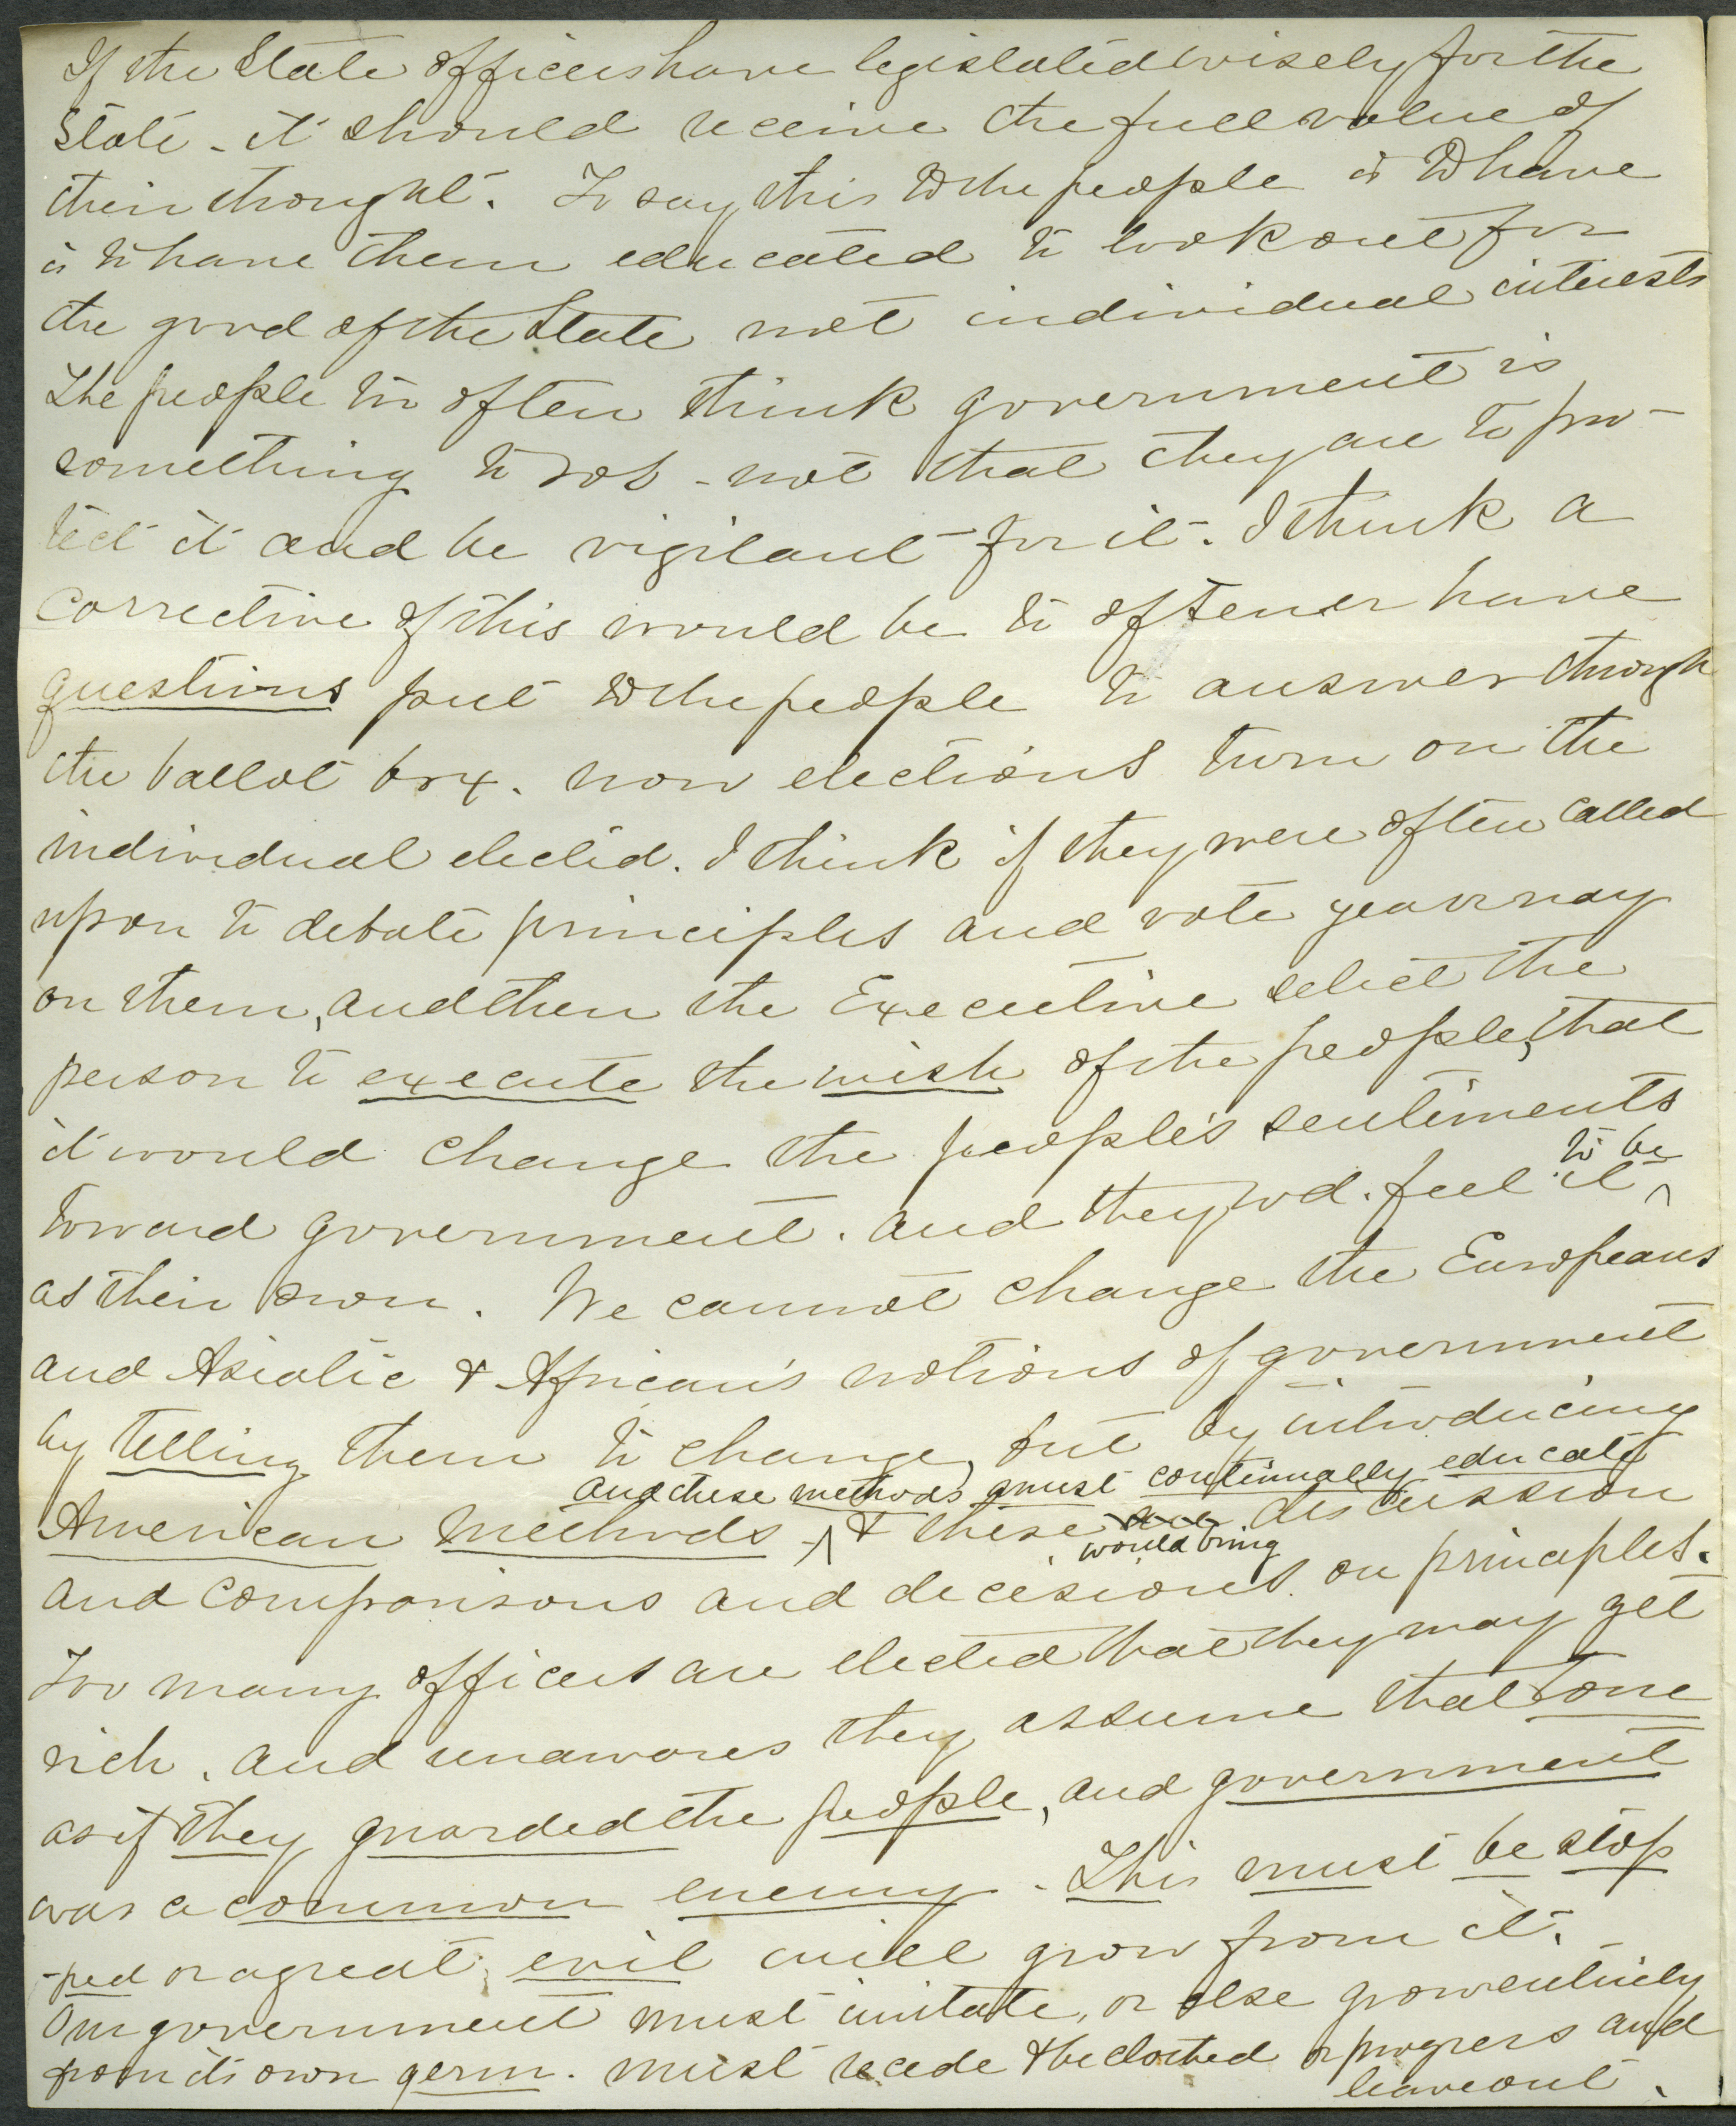 If the State officers have legislated wisely for the
State - it should receive the full value of
their thought. To say this to the people is to have
is to have them educated to look out for
the good of the State not individual interests
The people too often think government is
something to rob - not that they are to pro-
tect it and be vigilant for it. I think a
corrective of this would be to oftener have
questions put to the people to answer through
the ballot box. now elections turn on the
individual elected. I think if they were often called
upon to debate principles and vote yea or nay
on them, and then the Executive select the
person to execute the wish of the people, that
it would change the people's sentiments
toward government. and they wd. feel it to be
as their own. We cannot change the Europeans
and Asiatic & African's notions of government
by telling them to change, but by introducing
and these methods must continually educate
American methods - & these are discussion
would bring
and comparisons and decisions on principles.
Too many officers are elected that they may get
rich. and unawares they assume that tone
as if they guarded the people, and government
was a common enemy. This must be stop
-ped or a great evil will grow from it.
Our government must imitate, or else grow entirely
from its own germ. must recede & be clothed or progress and
leave out.